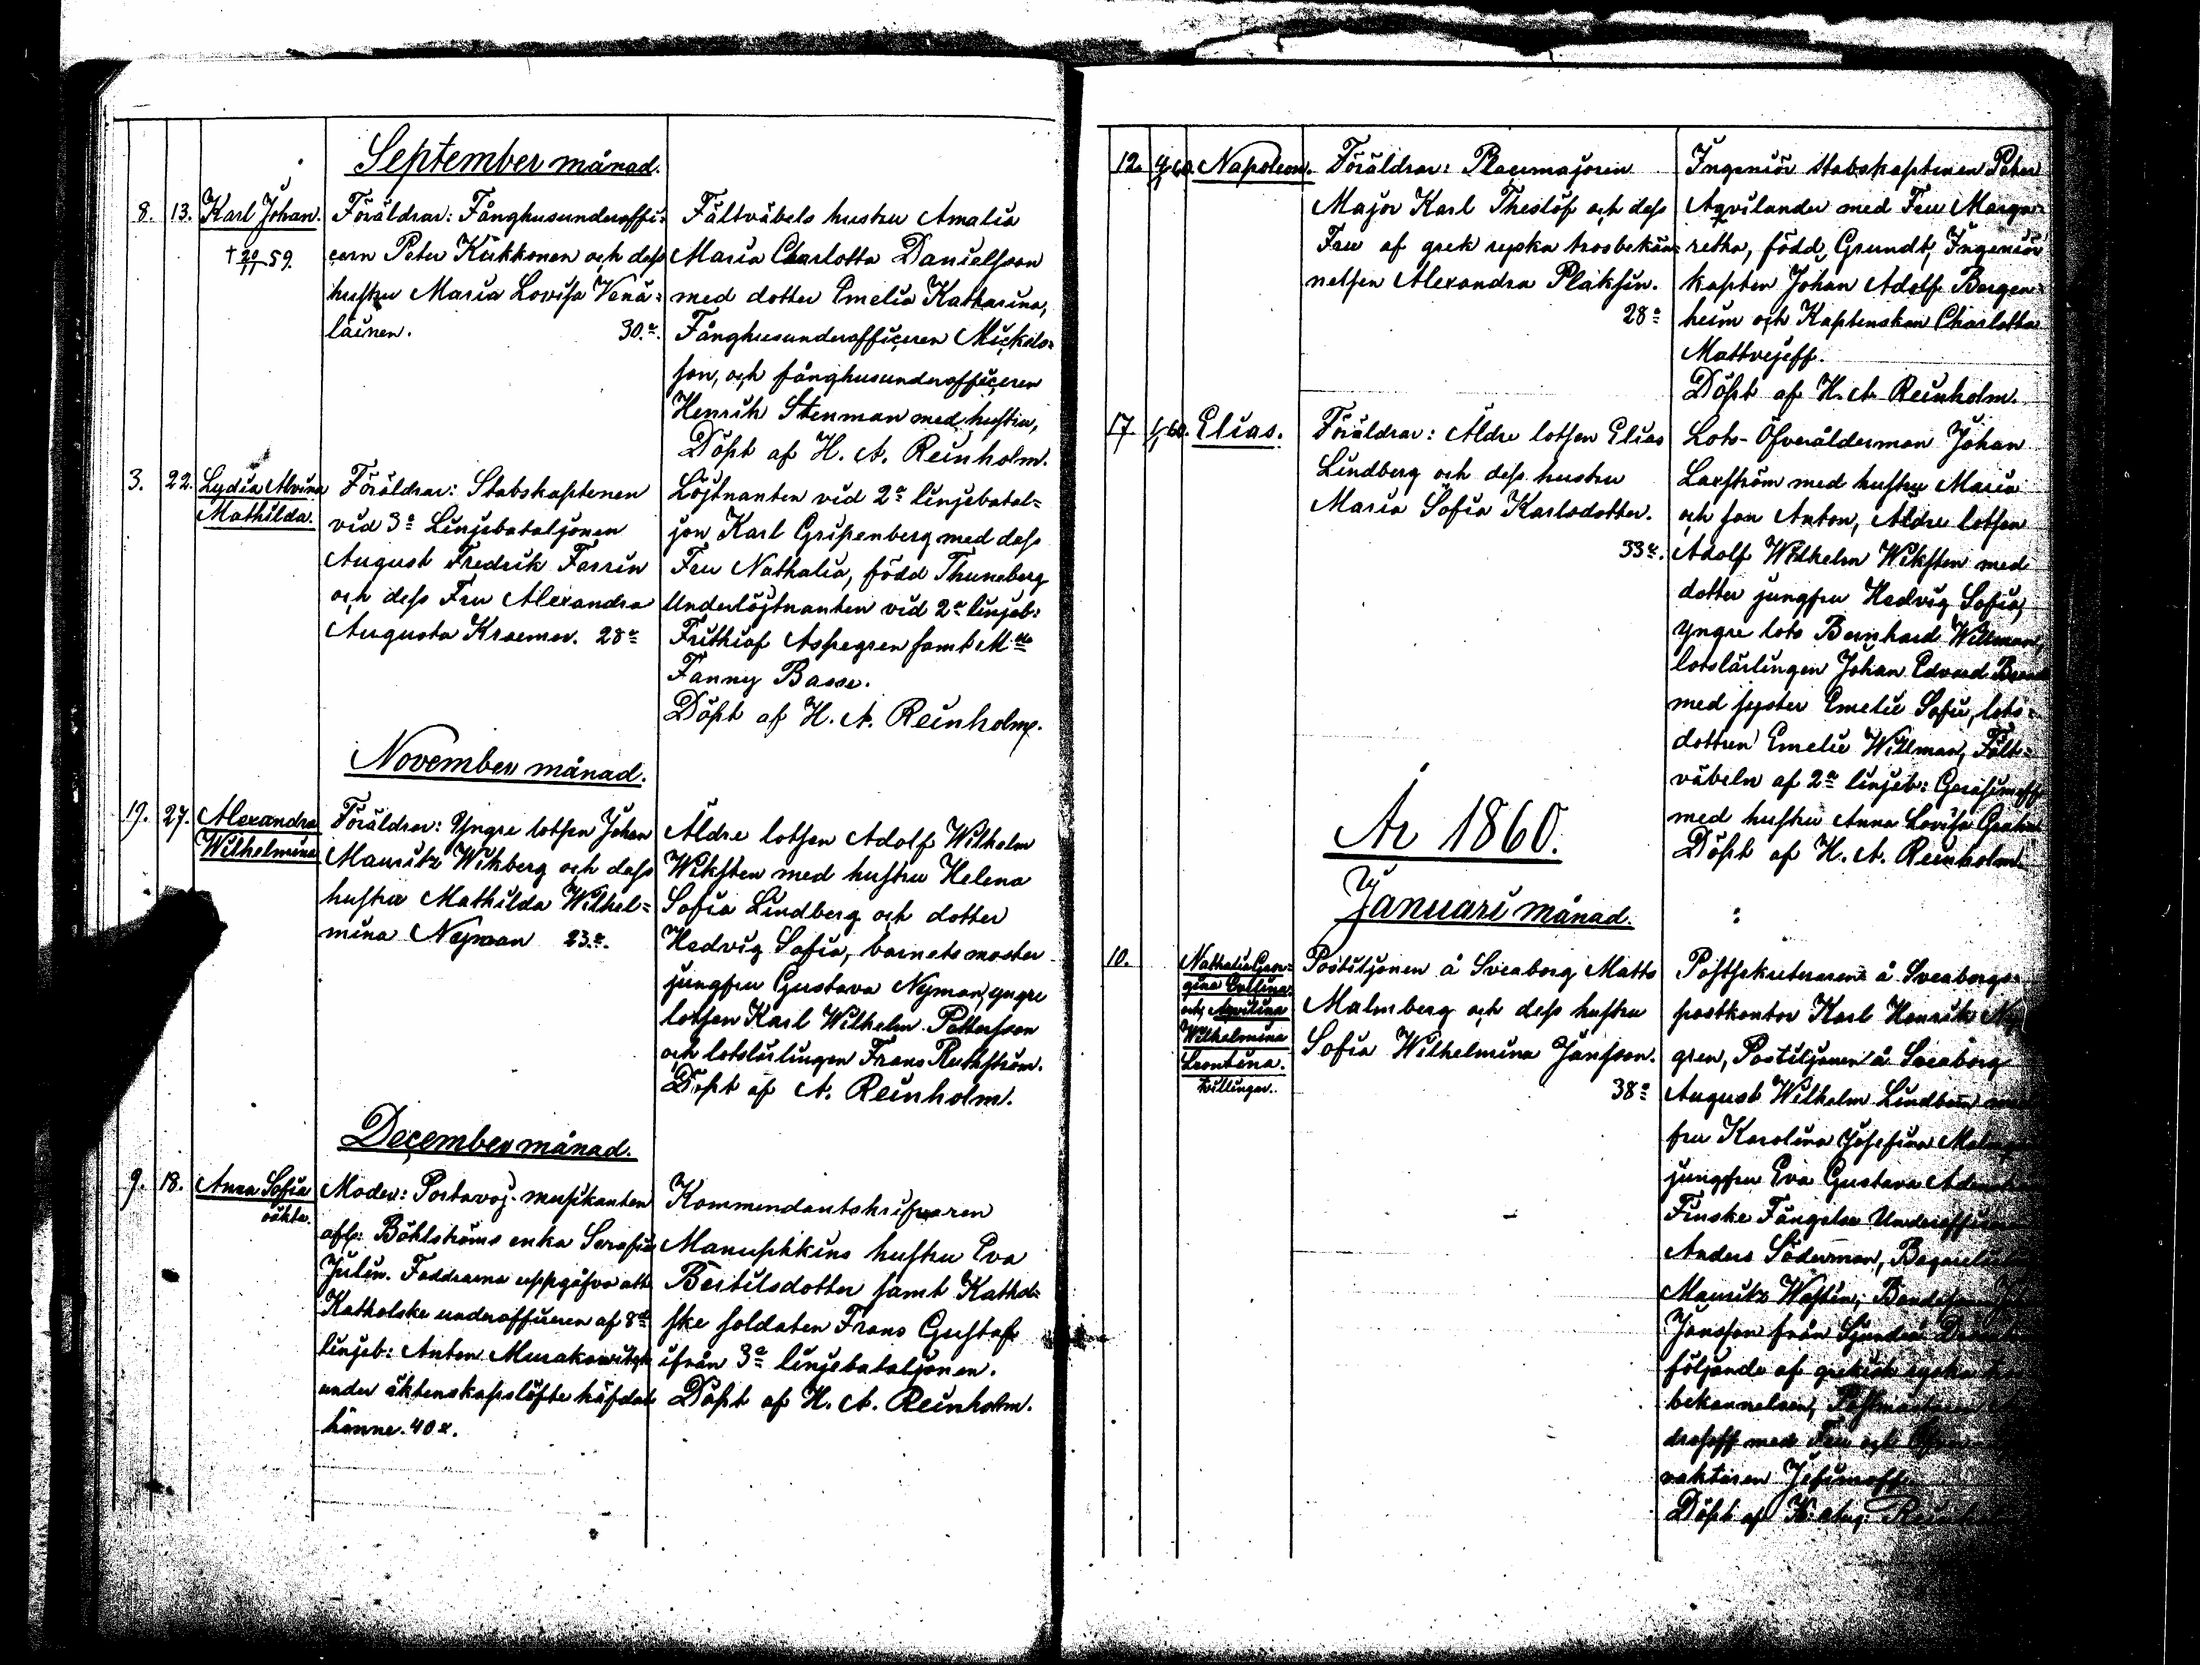 September månad.
8. 13. Karl Johan.
† 20/11 59.
Föräldrar: Fånghusunderoffi-
cern Peter Kukkonen och dess
hustru Maria Lovisa Venä-
läinen. 30. a.
Fältväbels hustru Amalia
Maria Charlotta Danielsson
med dotter Emelia Katharina,
Fånghusunderofficeren Mickels-
son, och fånghusunderofficeren
Henrik Stenman med hustru,
Döpt af H. A. Reinholm.
3. 22. Lydia Alvina
Mathilda.
Föräldrar: Stabskaptenen
vid 3e Linjebataljonen
August Fredrik Forrin
och dess Fru Alexandra
Augusta Kraemer. 28 a
Löjtnanten vid 2a linjebatal-
jon Karl Gripenberg med dess
Fru Nathalia, född Thuneberg
Underlöjtnanten vid 2a linjeb:
Frithiof Aspegren samt M
Fanny Basse.
Döpt af H. A. Reinholm.
November månad.
19. 27. Alexandra
Wilhelmina
Föräldrar: Yngre lotsen Johan
Mauritz Wikberg och dess
hustru Mathilda Wilhel-
mina Nyman 23. a.
Äldre lotsen Adolf Wilhelm
Wiksten med hustru Helena
Sofia Lindberg och dotter
Hedvig Sofia, barnets moster
jungfru Gustava Nyman, yngre
lotsen Karl Wilhelm Pettersson
och lotslärlingen Frans Ruthström.
Döpt af A. Reinholm.
December månad.
9. 18. Anna Sofia
oäkta.
Moder: Portavoj. musikanten
afl: Böhlströms enka Serafia
Julin. Faddrarne uppgåfvo att
Katholske underofficeren af 8de
linjeb: Anton
under äktenskapslöfte häfdat
henne. 40 a.
Kommendantskrifvaren
Manuschkins hustru Eva
Bertilsdotter samt Kathol-
ske soldaten Frans Gustaf
ifrån 3e linjebataljonen.
Döpt af H. A. Reinholm.
12. Napoleon.
Föräldrar: Placemajoren
Major Karl Theslöf och dess
Fru af grek ryska trosbekän-
nelsen Alexandra Plaksin.
28 a
Ingeniör Stabskaptenen Peter
Aqvilander med Fru Marga-
retha, född Grundt, Ingeniör
kapten Johan Adolf Bergen-
heim och Kaptenskan Charlotta
Mattvejeff.
Döpt af H. A. Reinholm.
17. Elias.
Föräldrar: Äldre lotsen Elias
Lindberg och dess hustru
Maria Sofia Karlsdotter.
33 a.
Lots-Öfverålderman Johan
Laxström med hustru Maria
och son Anton, Äldre lotsen
Adolf Wilhelm Wiksten med
dotter jungfru Hedvig Sofia,
yngre lots Bernhard Willman,
lotslärlingen Johan Edvard
med syster Emelie Sofie, lots-
dottren Emelie Willman, Fält-
väbeln af 2a linjeb: Gerasimoff
med hustru Anna Lovisa
Döpt af H. A. Reinholm.
År 1860.
Januari månad.
10. Nathalia Geor-
gina Evelina
och Aqvilina
Wilhelmina
Leontina.
tvillingar.
Postiljonen å Sveaborg Matts
Malmberg och dess hustru
Sofia Wilhelmina Jansson.
38 a
Postsekreteraren å Sveaborgs
postkontor Karl Henrik
gren, Postiljonen å Sveaborg
August Wilhelm
fru Karolina Josefina
jungfru Eva Gustava
Finske Fångelse
Anders Söderman,
Mauritz
Jansson från Sjundeå
följande af grekisk ryska
bekännelsen, Postmästaren
med Fru och
vaktaren Jefimoff.
Döpt af